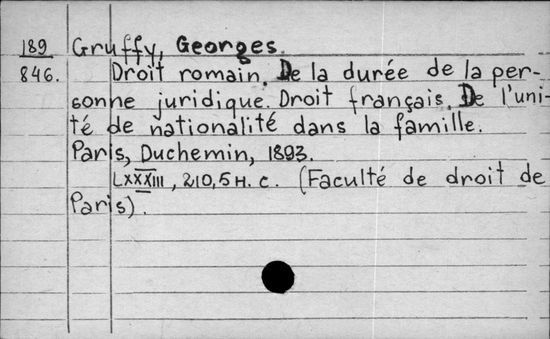 189 Gruffy, Georges.
846. Droit romain. De la durée de la per-
sonne juridique. Droit français. De l'uni-
té de nationalité dans la famille.
Paris, Duchemin, 1893.
LXXXIII, 210, 5 н. с. (Faculté de droit de
Paris).